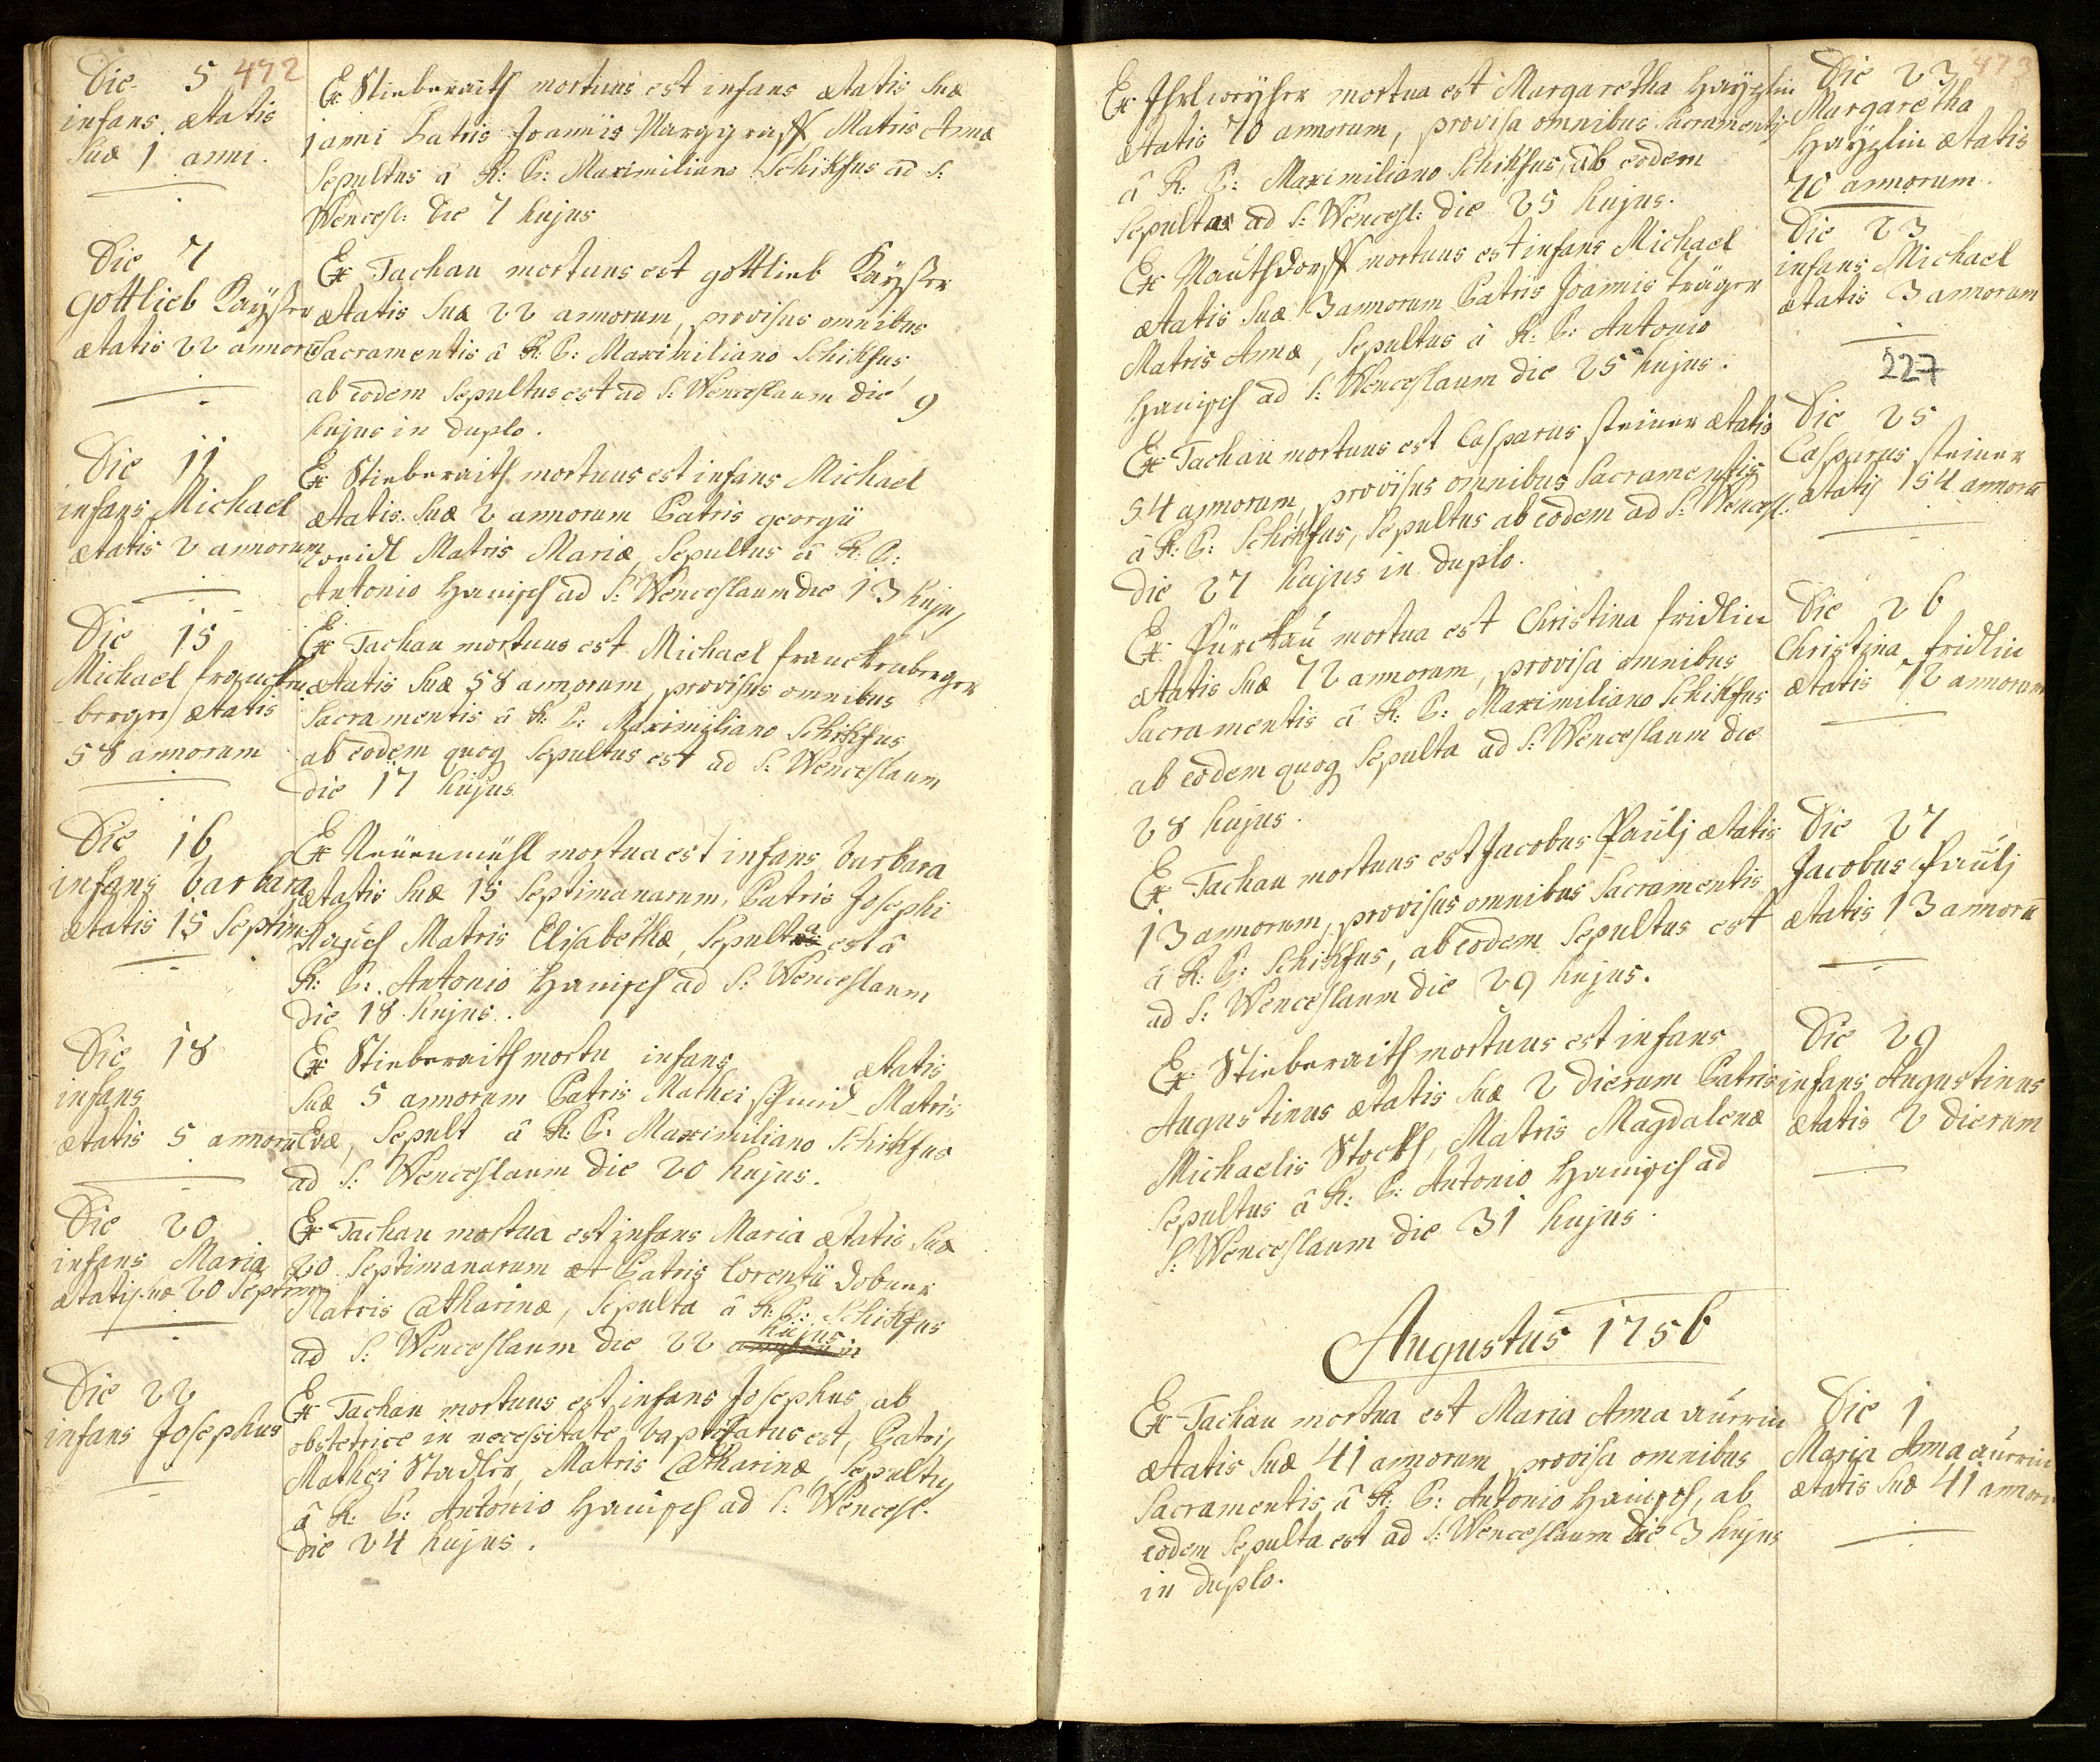 472
Die 5
infans ætatis
suæ 1 anni.
Ex Stieberaith mortuus est infans ætatis suæ
1 anni Patris Joannis Marggraff Matris Annæ
sepultus â R: P: Maximiliano Schikfus ad S:
Wencesl: die 7 hujus
Die 7
Gottlieb Kaÿser
ætatis 22 annorū
Ex Tachau mortuus est gottlieb Kaÿser
ætatis suæ 22 annorum, provisus omnibus
Sacramentis â R: P: Maximiliano Schikfus,
ab eodem sepultus est ad S: Wenceslaum die 9
hujus in duplo.
Die 11
infans Michael
ætatis 2 annorum
Ex Stieberaith mortuus est infans Michael
ætatis suæ 2 annorum Patris georgii
Matris Mariæ, sepultus â R: P:
Antonio Hanisch ad S: Wenceslaum die 13 huj9
Die 15
Michael francken
berger ætatis
58 annorum
Ex Tachau mortuus est Michael franckenberger
ætatis suæ 58 annorum, provisus omnibus
Sacramentis â R: P: Maximiliano Schikfus,
ab eodem quoq sepultus est ad S: Wenceslaum
die 17 hujus
Die 16
infans barbara
ætatis 15 Septim
Ex Neüenmühl mortua est infans barbara
ætatis suæ 15 Septimanarum, Patris Josephi
Matris Elisabethæ, sepulta est â
R: P: Antonio Hanisch ad S: Wenceslaum
die 18 hujus.
Die 18
infans
ætatis 5 annorū
Ex Stieberaith mortu infans ætatis
suæ 5 annorum Patris Mathei Schmid Matris
Evæ, sepult â R: P: Maximiliano Schikfus
ad S: Wenceslaum die 20 hujus.
Die 20
infans Maria
ætatis suæ 20 Septim
Ex Tachau mortua est infans Maria ætatis suæ
20 Septimanarum et Patris Lorentii Dobner
Matris Catharinæ, sepulta â R: P: Schikfus
ad S: Wenceslaum die 22 hujus
Die 22
infans Josephus
Ex Tachau mortuus est infans Josephus ab
obstetrice in necessitate baptizatus est, Patris
Mathei Stadler, Matris Catharinæ, sepultus
â R: P: Antonio Hanisch ad S: Wencesl:
die 24 hujus.
473
Ex Ihrlweyher mortua est Margaretha Haÿzlin
ætatis 70 annorum, provisa omnibus Sacramentis
â R: P: Maximiliano Schikfus, ab eodem
sepulta ad S: Wencesl: die 25 hujus.
Die 23
Margaretha
Haÿzlin ætatis
70 annorum.
Ex Mauthdorff mortuus est infans Michael
ætatis suæ 3 annorum Patris Joannis Träger
Matris Annæ, sepultus â R: P: Antonio
Hanisch ad S: Wenceslaum die 25 hujus.
Die 23
infans Michael
ætatis 3 annorum
227
Ex Tachau mortuus est Casparus steiner ætatis
54 annorum, provisus omnibus Sacramentis
â R: P: Schikfus, sepultus ab eodem ad S: Wencesl:
die 27 hujus in duplo.
Die 25
Casparus steiner
ætatis 54 annorū
Ex Pürckau mortua est Christina fridlin
ætatis suæ 72 annorum, provisa omnibus
Sacramentis â R: P: Maximiliano Schikfus
ab eodem quoq sepulta ad S: Wenceslaum die
28 hujus.
Die 26
Christina fridlin
ætatis 72 annorum
Ex Tachau mortuus est Jacobus Paulj ætatis
13 annorum, provisus omnibus Sacramentis
â R: P: Schikfus, ab eodem sepultus est
ad S: Wenceslaum die 29 hujus.
Die 27
Jacobus Paulj
ætatis 13 annorū
Ex Stieberaith mortuus est infans
Augustinus ætatis suæ 2 dierum Patris
Michaelis Stockh, Matris Magdalenæ
sepultus â R: P: Antonio Hanisch ad
S: Wenceslaum die 31 hujus.
Die 29
infans Augustinus
ætatis 2 dierum
Augustus 1756
Ex Tachau mortua est Maria Anna aurrin
ætatis suæ 41 annorum, provisa omnibus
Sacramentis â R: P: Antonio Hanisch, ab
eodem sepulta est ad S: Wenceslaum die 3 hujus
in duplo.
Die 1
Maria Anna aurrin
ætatis suæ 41 annoru